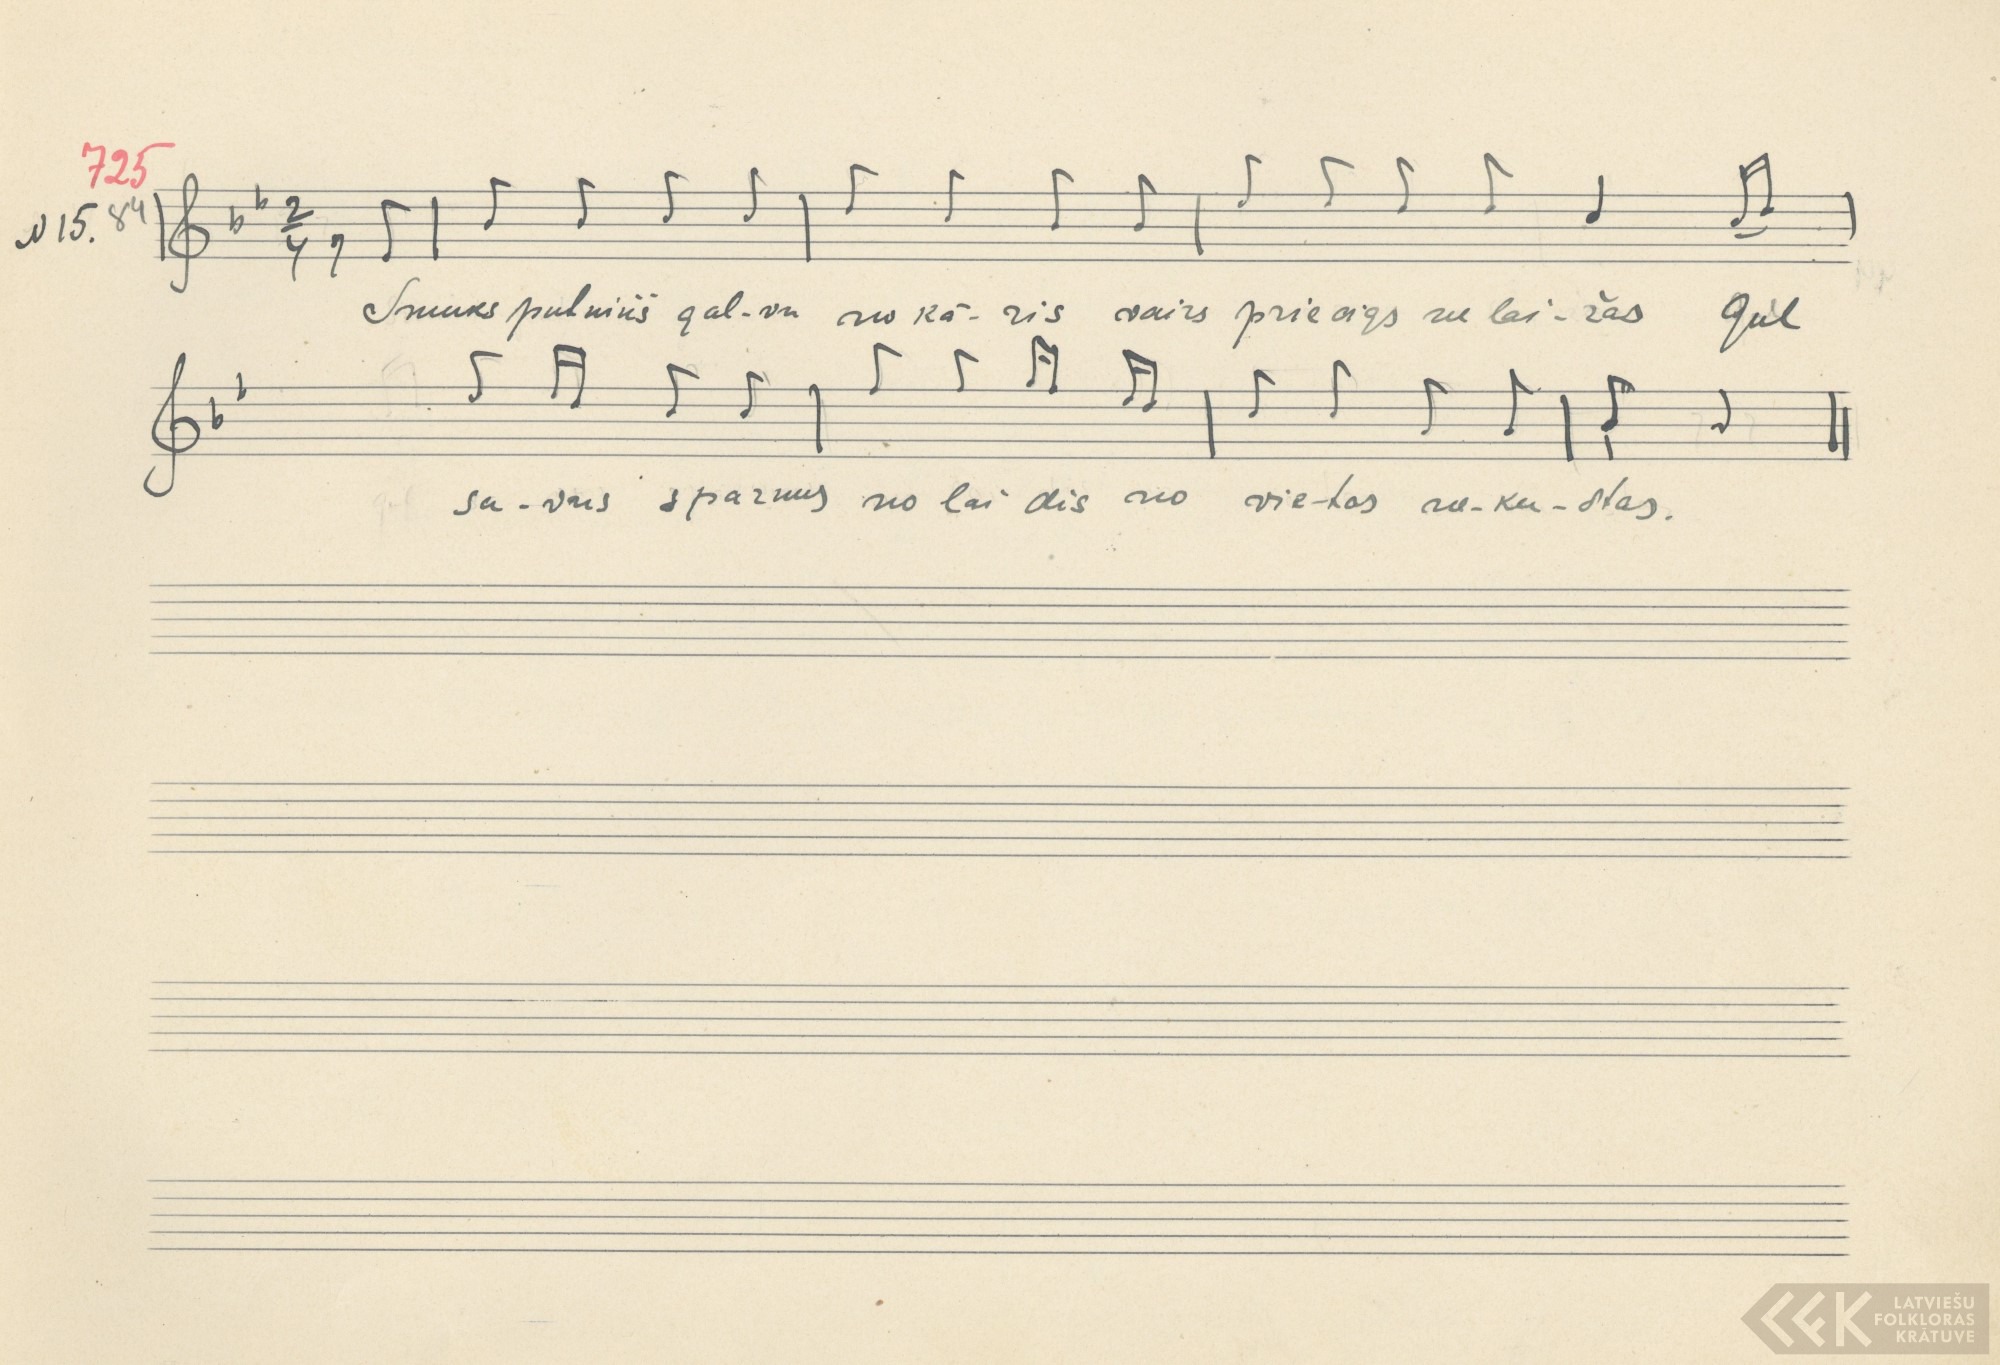 725
N 15. 84
2/4
Smuks putniņš gal-vu no kā-ris vairs priecīgs ne lai-žas Guļ
sa-vus sparnus no lai dis no vie-tas ne-ku-stas.
LATVIEŠU
FOLKLORAS
KRĀTUVE